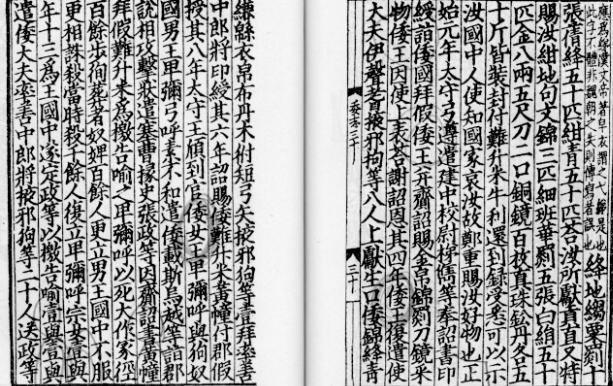 應為綈漢文帝著皁衣謂之弋綈是也
此字不體非魏朝之失則傳寫者誤也
絳地縐粟罽十
張蒨絳五十匹紺青五十匹荅汝所獻貢直又特
賜汝紺地句文錦三匹細班華罽五張白絹五十
匹金八兩五尺刀二口銅鏡百枚真珠鈆丹各五
十斤皆裝封付難升米牛利還到録受悉可以示
汝國中人使知國家哀汝故鄭重賜汝好物也正
始元年太守弓遵遣建中校尉梯儁等奉詔書印
綬詣倭國拜假倭王并齎詔賜金帛錦罽刀鏡采
物倭王因使上表荅謝詔恩其四年倭王復遣使
大夫伊聲耆掖邪狗等八人上獻生口倭錦絳青
魏志三十
三十
縑緜衣帛布丹木附短弓矢掖邪狗等壹拜率善
中郎將印綬其六年詔賜倭難升米黃幢付郡假
授其八年太守王頎到官倭女王卑彌呼與狗奴
國男王卑彌弓呼素不和遣倭載斯烏越等詣郡
說相攻擊狀遣塞曹掾史張政等因齎詔書黃幢
拜假難升米為檄告喻之卑彌呼以死大作冢徑
百餘步徇葬者奴婢百餘人更立男王國中不服
更相誅殺當時殺千餘人復立卑彌呼宗女壹與
年十三為王國中遂定政等以檄告喻壹與壹與
遣倭大夫率善中郎將掖邪狗等二十人送政等